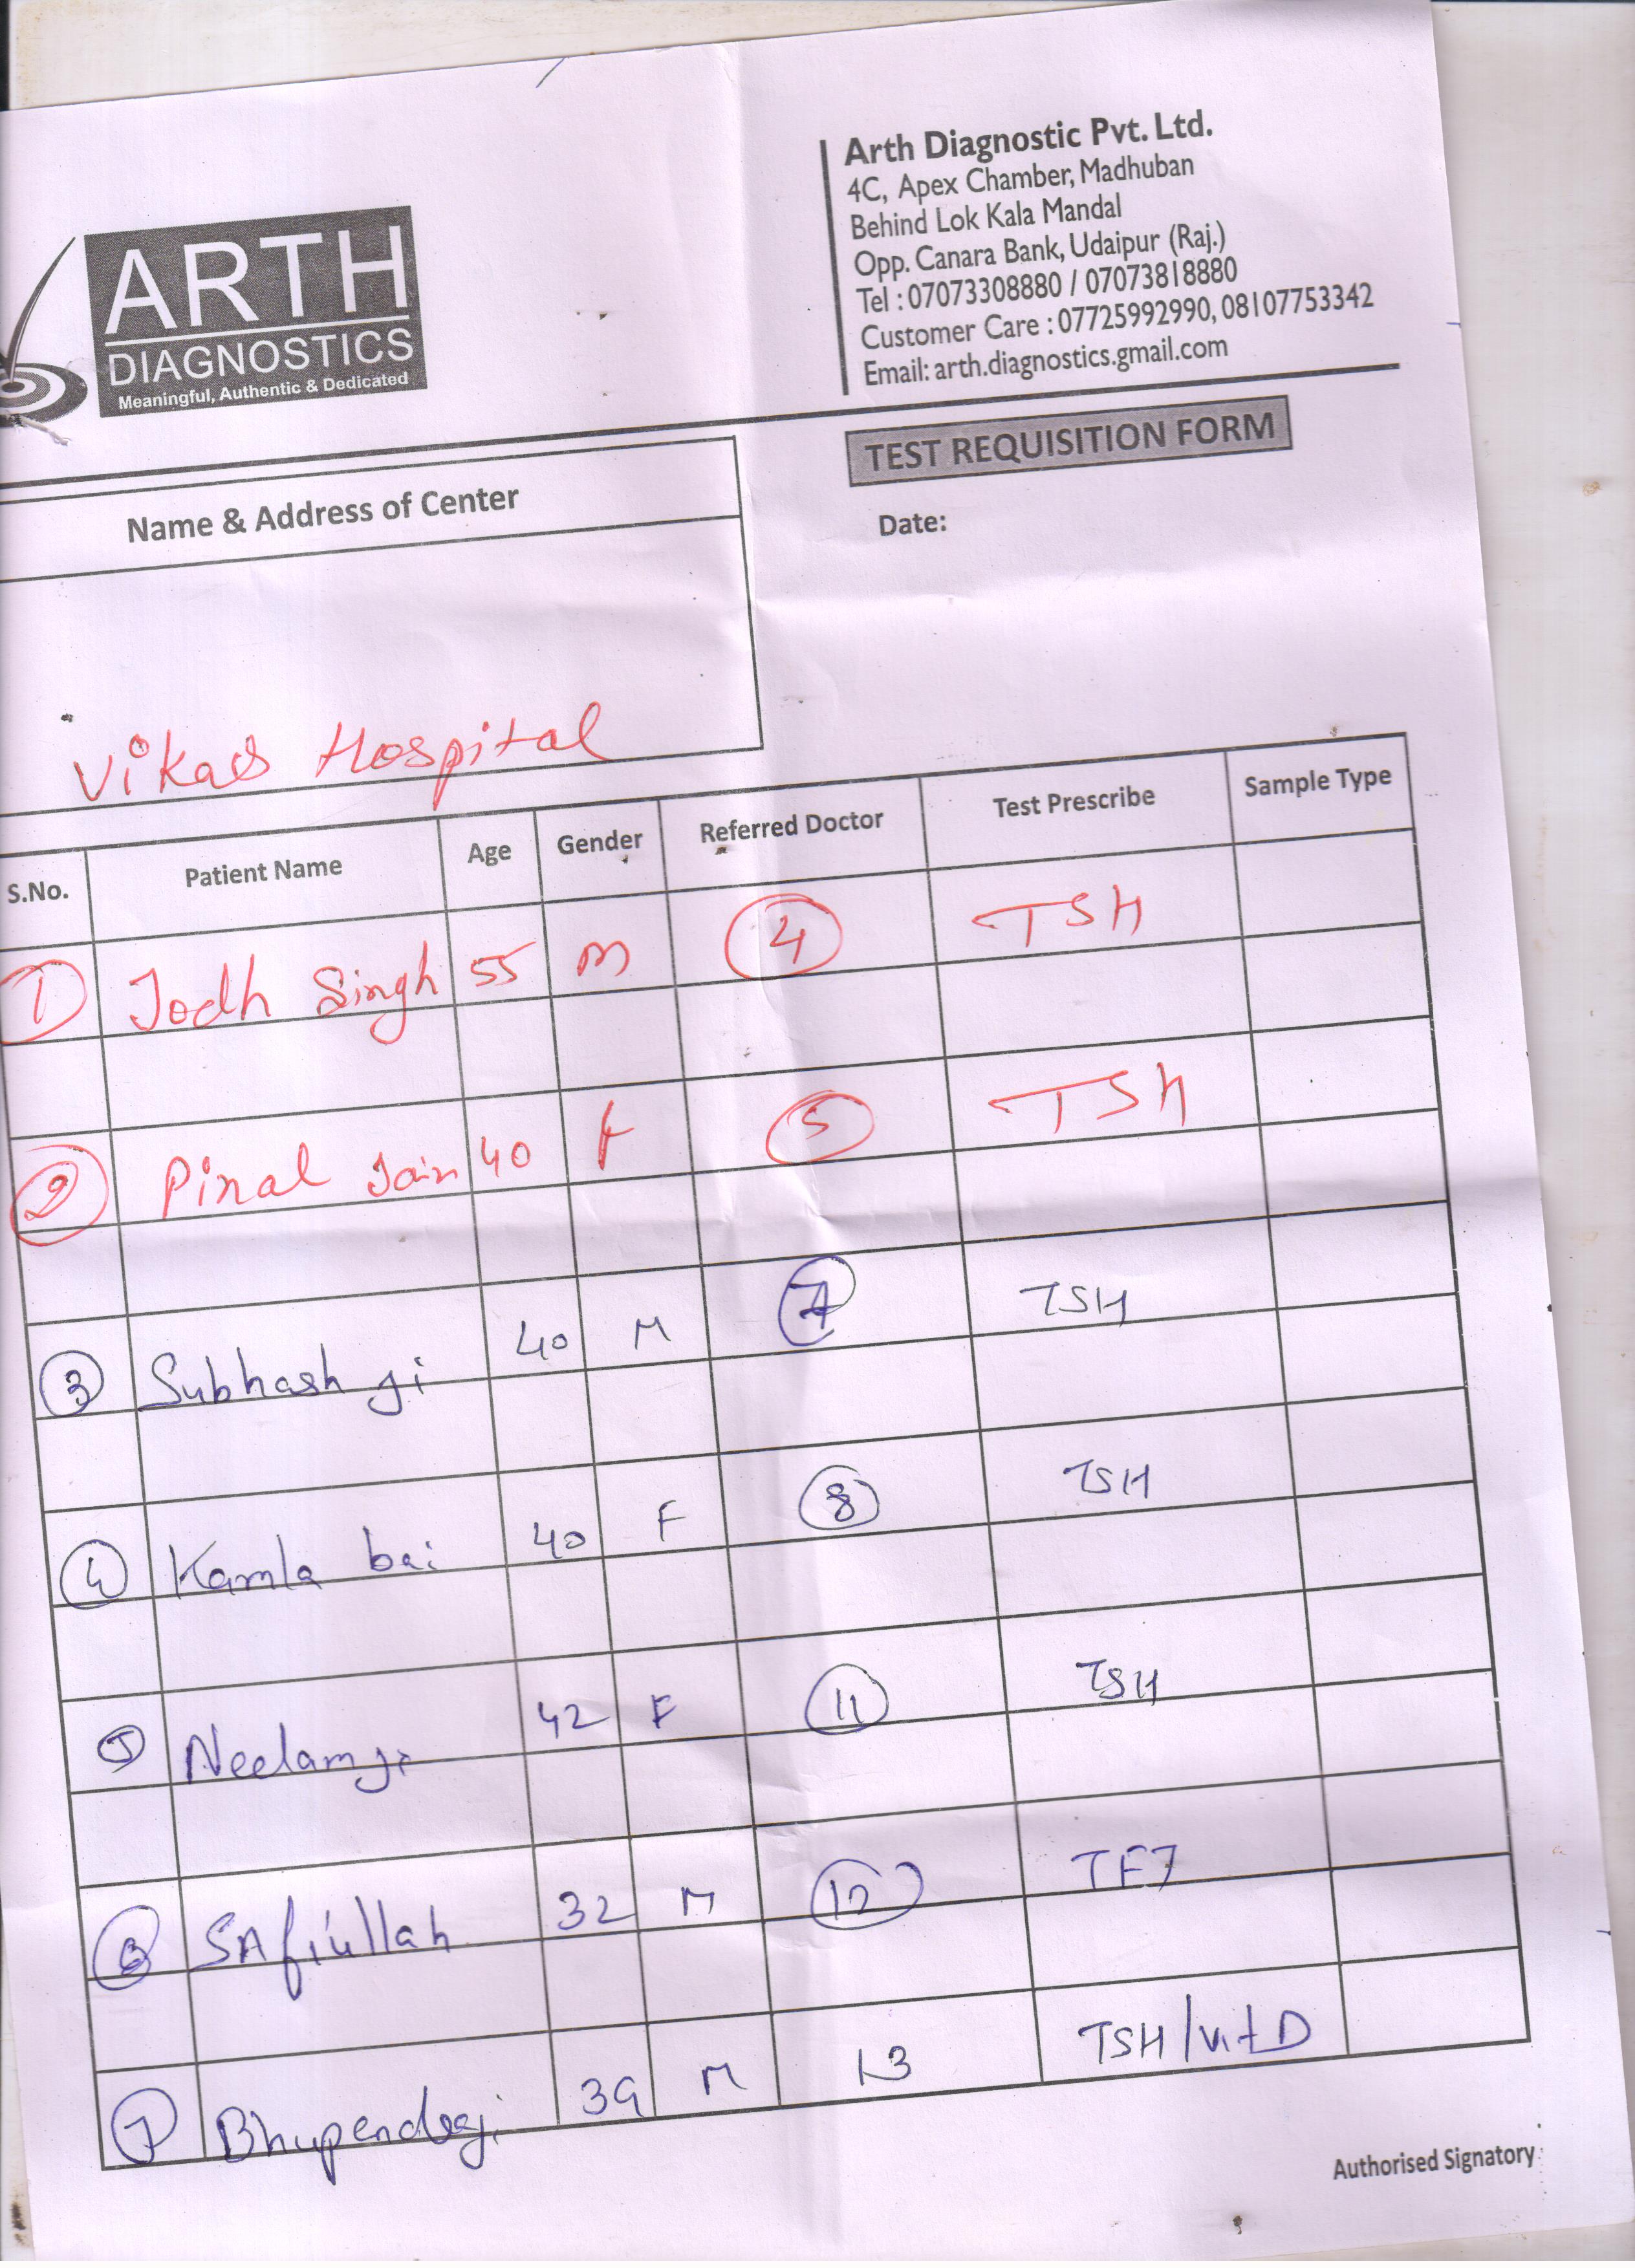 Arth Diagnostic Pvt. Ltd.
4C, Apex Chamber, Madhuban
Behind Lok Kala Mandal
Opp. Canara Bank, Udaipur (Raj.)
Tel : 07073308880 / 07073818880
Customer Care : 07725992990, 08107753342
Email: arth.diagnostics.gmail.com
ARTH
DIAGNOSTICS
Meaningful, Authentic & Dedicated
TEST REQUISITION FORM
Name & Address of Center
Date:
Vikas Hospital
S.No. Patient Name Age Gender Referred Doctor Test Prescribe Sample Type
1 Jodh Singh 55 M 4 TSH
2 Pinal Jain 40 F 5 TSH
3 Subhash ji 40 M 7 TSH
4 Kamla bai 40 F 8 TSH
5 Neelam ji 42 F 11 TSH
6 SAfiullah 32 M 12 TFT
7 Bhupendraji 39 M 13 TSH/Vit D
Authorised Signatory